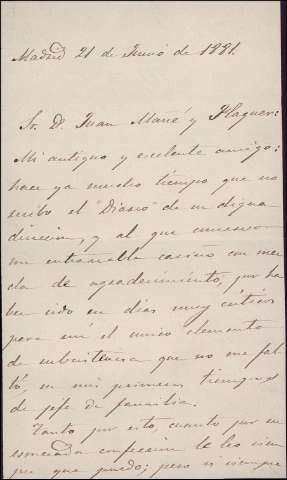 Madrid 21 de Junio de 1881.
Sr. D. Juan Mañé y Flaquer:
Mi antiguo y escelente amigo:
hace ya mucho tiempo que no
recibo el "Diario" de su digna
direccion, y al que conservo
un entrañable cariño con mez
cla de agradecimiento, por ha
ber sido en dias muy criticos
para mí el unico elemento
de subsistencia que no me fal
tó, en mis primeros tiempos
de jefe de familia.
Tanto por esto, cuanto por su
esmerada confeccion le leo siem
pre que puedo; pero si siempre